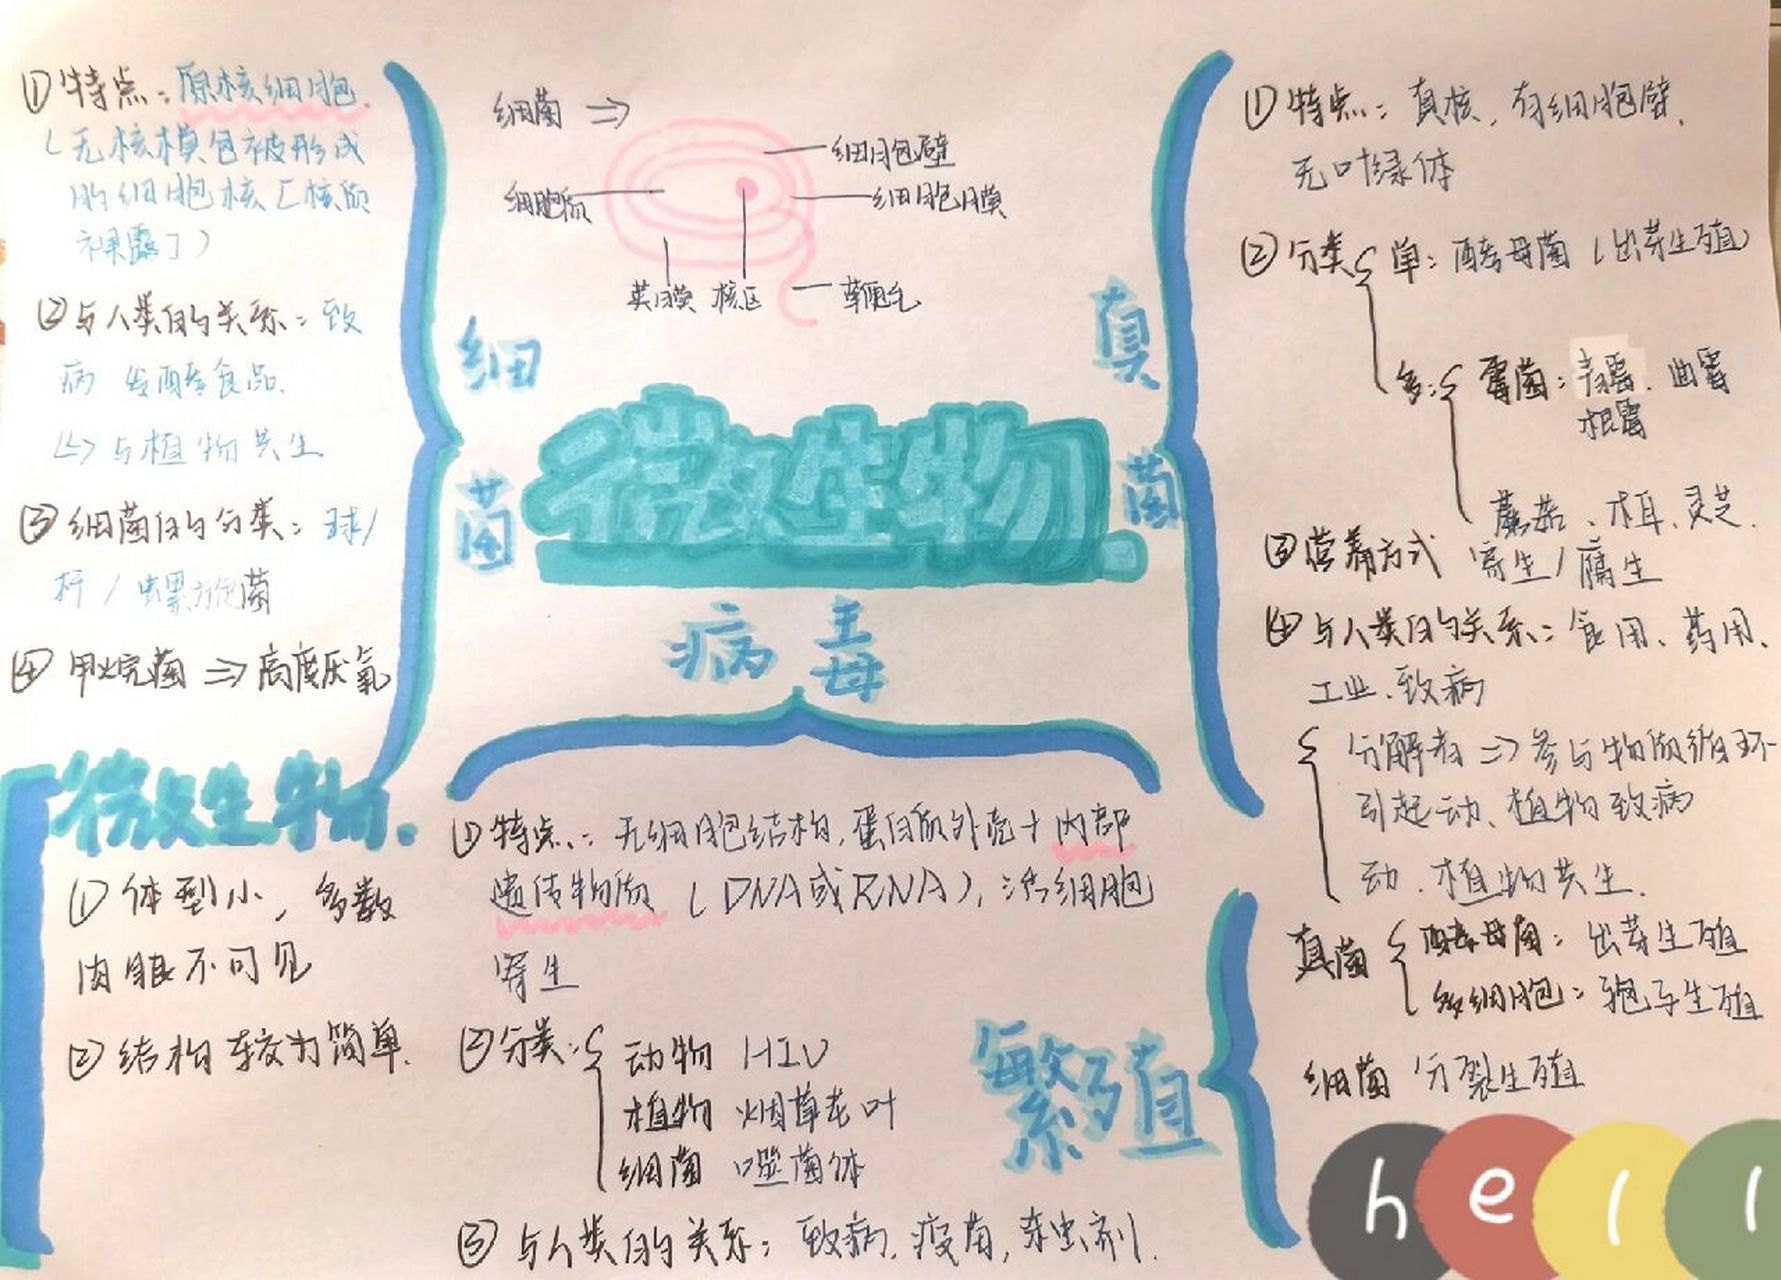 ①特点：原核细胞.
(无核模包被形成
的细胞核[核质
裸露了)
②与人类的关系：致
病 发酵食品.
↳与植物共生
③细菌的分类：球/
杆/螺旋菌
④甲烷菌⇒高度厌氧
细菌⇒
细胞壁
细胞质
细胞膜
荚膜 核区
鞭毛
细
菌
微生物
真
菌
病毒
①特点：真核、有细胞壁、
无叶绿体
②分类{单：酵母菌(出芽生殖)
多：{霉菌：青霉、曲霉
根霉
蘑菇、木耳、灵芝.
③营养方式 寄生/腐生
④与人类的关系：食用、药用、
工业、致病
{分解者⇒参与物质循环
引起动、植物致病
动、植物共生.
微生物.
①体型小，多数
肉眼不可见
②结构较为简单.
①特点：无细胞结构，蛋白质外壳+内部
遗传物质(DNA或RNA)，活细胞
寄生
②分类：{动物 HIV
植物 烟草花叶
细菌 噬菌体
③与人类的关系：致病，疫苗，杀虫剂.
繁殖
真菌{酵母菌：出芽生殖
多细胞：孢子生殖
细菌 分裂生殖
hell